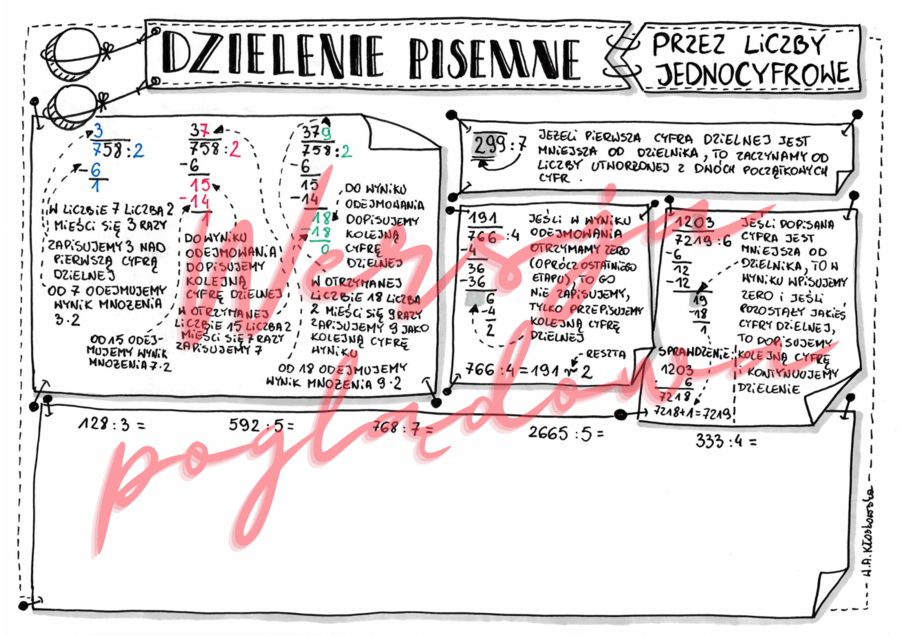 DZIELENIE PISEMNE
PRZEZ LICZBY
JEDNOCYFROWE
3
758:2
-6
1
W LICZBIE 7 LICZBA 2
MIEŚCI SIĘ 3 RAZY
ZAPISUJEMY 3 NAD
PIERWSZĄ CYFRĄ
DZIELNEJ
OD 7 ODEJMUJEMY
WYNIK MNOŻENIA
3·2
37
758:2
-6
15
-14
1
DO WYNIKU
ODEJMOWANIA
DOPISUJEMY
KOLEJNĄ
CYFRĘ DZIELNEJ
W OTRZYMANEJ
LICZBIE 15 LICZBA 2
MIEŚCI SIĘ 7 RAZY
ZAPISUJEMY 7
OD 15 ODEJ-
MUJEMY WYNIK
MNOŻENIA 7·2
379
758:2
-6
15
-14
18
-18
0
DO WYNIKU
ODEJMOWANIA
DOPISUJEMY
KOLEJNĄ
CYFRĘ
DZIELNEJ
W OTRZYMANEJ
LICZBIE 18 LICZBA
2 MIEŚCI SIĘ 9 RAZY
ZAPISUJEMY 9 JAKO
KOLEJNĄ CYFRĘ
WYNIKU
OD 18 ODEJMUJEMY
WYNIK MNOŻENIA 9·2
299:7
JEŻELI PIERWSZA CYFRA DZIELNEJ JEST
MNIEJSZA OD DZIELNIKA, TO ZACZYNAMY OD
LICZBY UTWORZONEJ Z DWÓCH POCZĄTKOWYCH
CYFR.
191
766:4
-4
36
-36
6
-4
2
JEŚLI W WYNIKU
ODEJMOWANIA
OTRZYMAMY ZERO
(OPRÓCZ OSTATNIEGO
ETAPU), TO GO
NIE ZAPISUJEMY,
TYLKO PRZEPISUJEMY
KOLEJNĄ CYFRĘ
DZIELNEJ
RESZTA
766:4=191 r 2
1203
7219:6
-6
12
-12
19
-18
1
SPRAWDZENIE:
1203
6
7218
7218+1=7219
JEŚLI DOPISANA
CYFRA JEST
MNIEJSZA OD
DZIELNIKA, TO W
WYNIKU WPISUJEMY
ZERO I JEŚLI
POZOSTAŁY JAKIEŚ
CYFRY DZIELNEJ,
TO DOPISUJEMY
KOLEJNĄ CYFRĘ
I KONTYNUUJEMY
DZIELENIE
128:3=
592:5=
768:7=
2665:5=
333:4=
Wersja
poglądowa